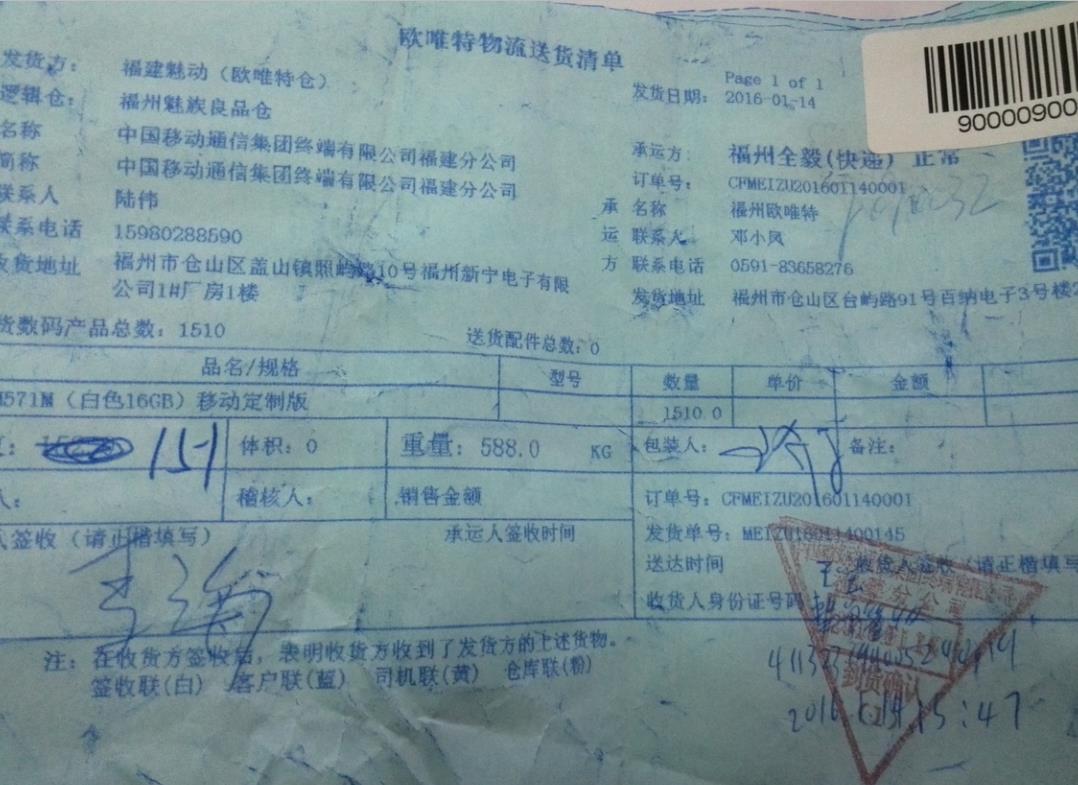 欧唯特物流送货清单
Page 1 of 1
发货日期：2016-01-14
90000900
发货方：福建魅动（欧唯特仓）
逻辑仓：福州魅族良品仓
名称 中国移动通信集团终端有限公司福建分公司
简称 中国移动通信集团终端有限公司福建分公司
联系人 陆伟
联系电话 15980288590
收货地址 福州市仓山区盖山镇照屿路10号福州新宁电子有限
公司1#厂房1楼
承运方：福州全毅(快递) 正常
订单号：CFMEIZU201601140001
承 名称 福州欧唯特
运 联系人 邓小凤
方 联系电话 0591-83658276
发货地址 福州市仓山区台屿路91号百纳电子3号楼2
货数码产品总数：1510 送货配件总数：0
品名/规格 型号 数量 单价 金额
M571M（白色16GB）移动定制版 1510.0
151 体积：0 重量：588.0 KG 包装人： 备注：
人： 稽核人： 销售金额 订单号：CFMEIZU201601140001
人签收（请正楷填写） 承运人签收时间 发货单号：MEIZU16011400145
送达时间 收货人签收（请正楷填写
收货人身份证号码
分公司
到货确认
注：在收货方签收后，表明收货方收到了发货方的上述货物。
签收联(白) 客户联(蓝) 司机联(黄) 仓库联(粉)
15:47